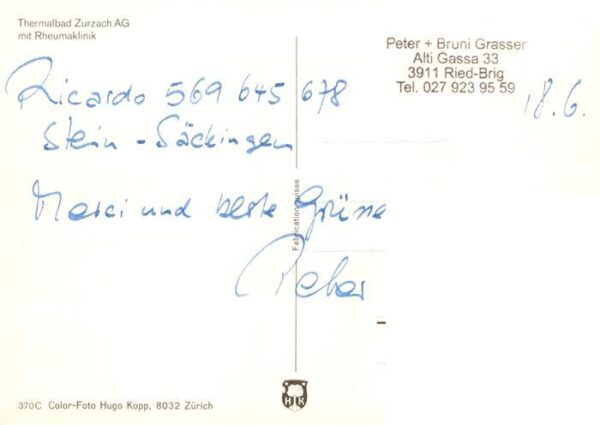 Thermalbad Zurzach AG
mit Rheumaklinik
Peter + Bruni Grasser
Alti Gassa 33
3911 Ried-Brig
Tel. 027 923 95 59
18.6.
Ricardo 569 645 678
Stein - Säckingen
Merci und beste Grüsse
Peter
Fabrication suisse
HK
370C Color-Foto Hugo Kopp, 8032 Zürich